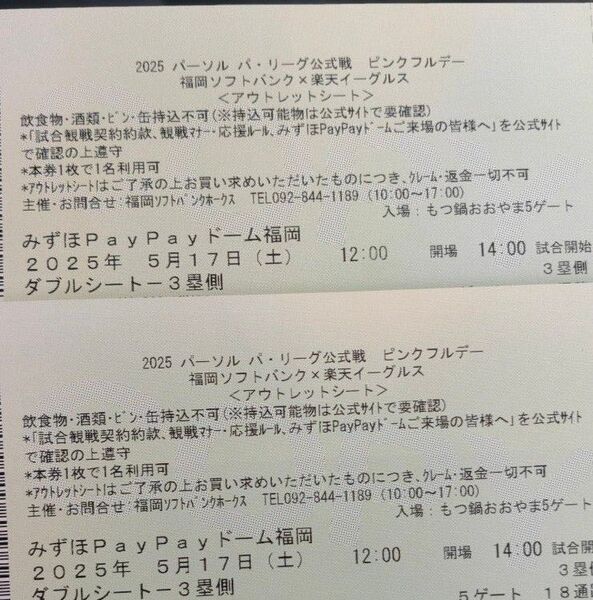 2025 パーソル パ・リーグ公式戦 ピンクフルデー
福岡ソフトバンク×楽天イーグルス
＜アウトレットシート＞
飲食物・酒類・ビン・缶持込不可(※持込可能物は公式サイトで要確認)
*「試合観戦契約約款、観戦マナー・応援ルール、みずほPayPayドームご来場の皆様へ」を公式サイト
で確認の上遵守
*本券1枚で1名利用可
*アウトレットシートはご了承の上お買い求めいただいたものにつき、クレーム・返金一切不可
主催・お問合せ:福岡ソフトバンクホークス TEL092-844-1189 (10:00～17:00)
入場：もつ鍋おおやま5ゲート
みずほＰａｙＰａｙドーム福岡
２０２５年 ５月１７日（土） 12:00 開場 14:00 試合開始
ダブルシートー３塁側 ３塁側
2025 パーソル パ・リーグ公式戦 ピンクフルデー
福岡ソフトバンク×楽天イーグルス
＜アウトレットシート＞
飲食物・酒類・ビン・缶持込不可(※持込可能物は公式サイトで要確認)
*「試合観戦契約約款、観戦マナー・応援ルール、みずほPayPayドームご来場の皆様へ」を公式サイト
で確認の上遵守
*本券1枚で1名利用可
*アウトレットシートはご了承の上お買い求めいただいたものにつき、クレーム・返金一切不可
主催・お問合せ:福岡ソフトバンクホークス TEL092-844-1189 (10:00～17:00)
入場：もつ鍋おおやま5ゲート
みずほＰａｙＰａｙドーム福岡
２０２５年 ５月１７日（土） 12:00 開場 14:00 試合開
ダブルシートー３塁側 ３塁側
５ゲート １８通